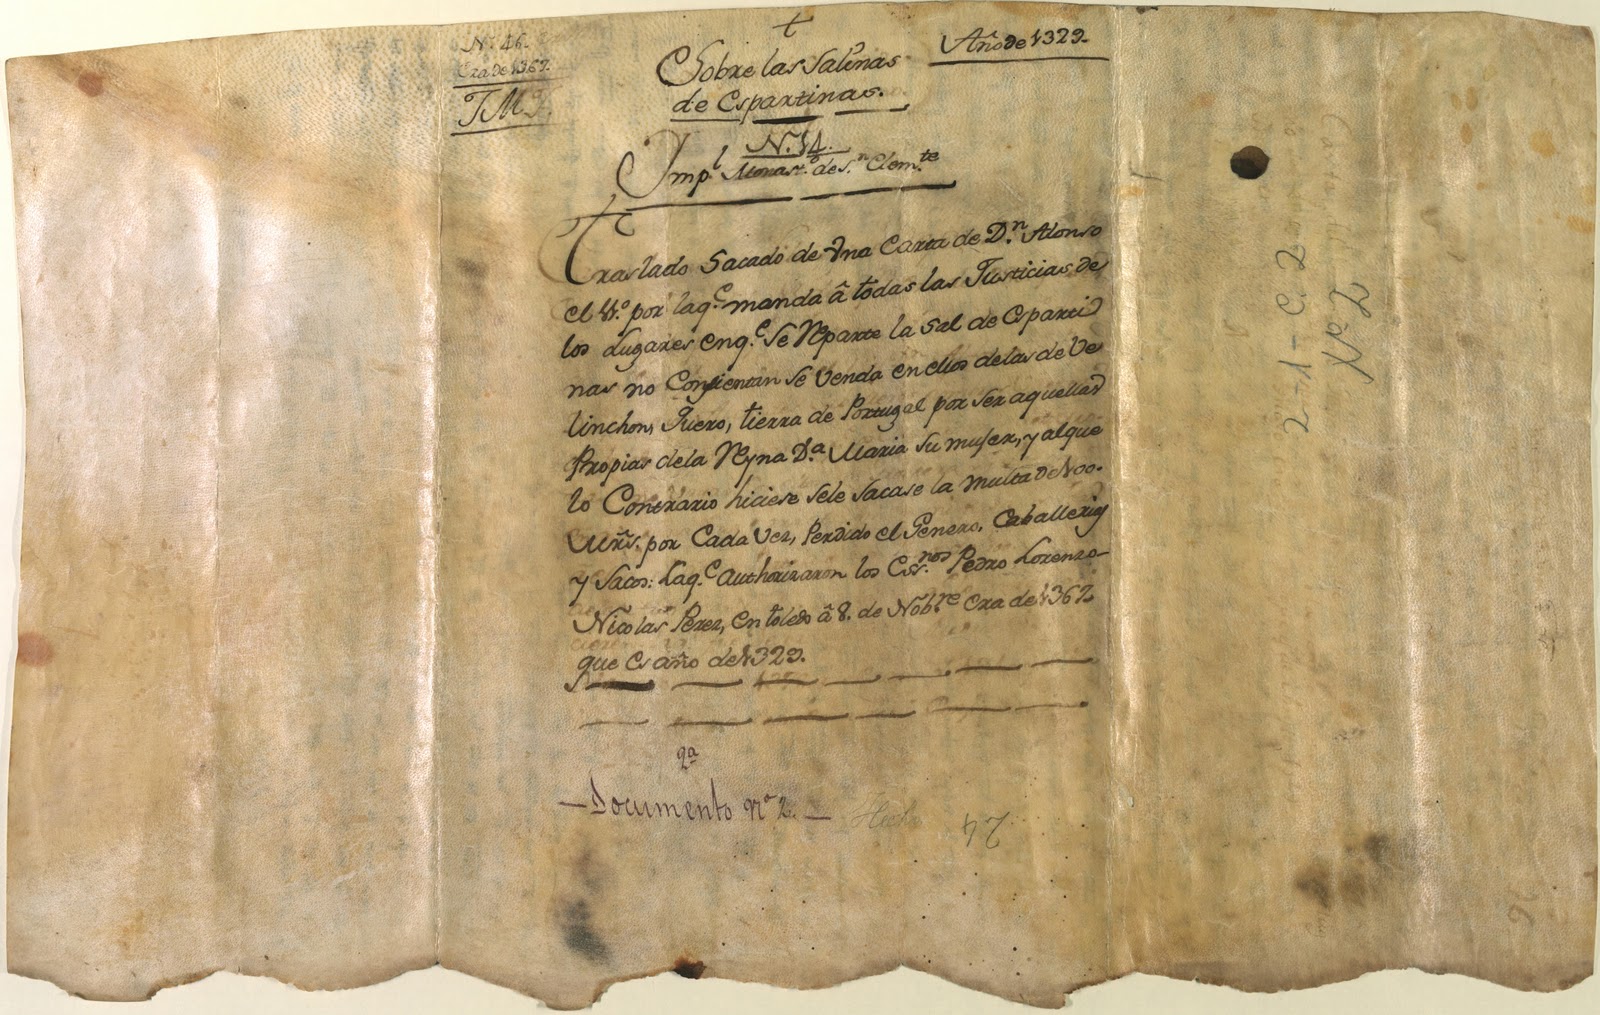 Nº 46.
Era de 1367.
T M J.
t
Sobre las Salinas
de Espartinas.
Año de 1329.
N. 14.
Impˡ Monastº de Sⁿ Clemᵗᵉ
Traslado Sacado de Vna Carta de Dⁿ Alonso
el por laqᵉ manda â todas las Justicias de
los Lugares enqᵉ se Reparte la sal de Esparti
nas no Consientan se Venda en ellos delas de Be
linchon, fuero, tierra de Portugal por ser aquellas
Propias dela Reyna Dᵃ Maria su mujer, y alque
lo Contrario hiciese sele sacase la multa de 100.
Mrs. por Cada Vez, Perdido el Genero, Caballerias
y Sacos: Laqᵉ authorizaron los Esʳⁿᵒˢ Pedro Lorenzo
Nicolas Perez, en toledo â 8. de Nobʳᵉ Era de 1367.
que es año de 1329.
2ª
Documento nº 2.
Hecho
47
2-1-C. 2
Nº 2
16